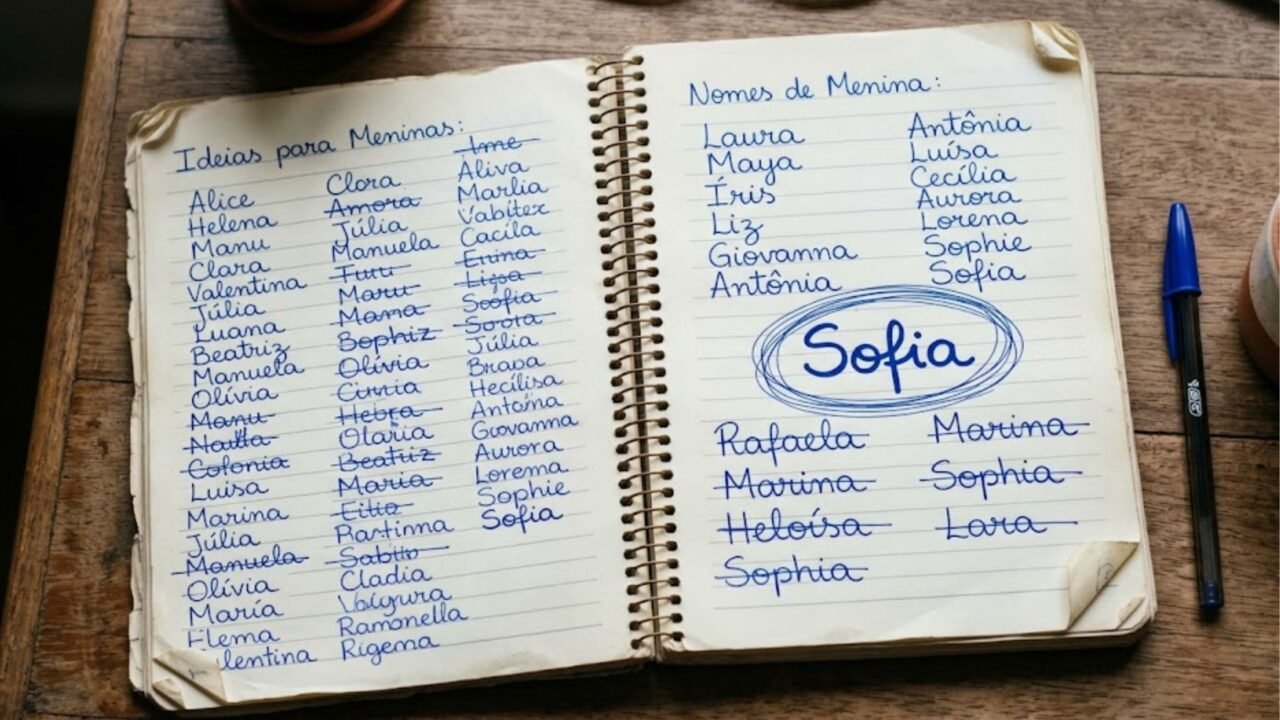 Ideias para Meninas:
Alice
Helena
Manu
Clara
Valentina
Júlia
Luana
Beatriz
Manuela
Olívia
Manu
Colonia
Luisa
Marina
Júlia
Manuela
Olívia
María
Elema
lentina
Clora
Amora
Júlia
Manuela
Maru
Mama
Bophiz
Olívia
Hebra
Olaria
Beatriz
Maria
Eilia
Rartinna
Cladia
Ramonella
Rigema
Ime
Aliva
Marlia
Vabitex
Cacíla
Enina
Ligoa
Soofia
Soora
Júlia
Brava
Hecílisa
Giovanna
Aurora
Lorema
Sophie
Sofia
Nomes de Menina:
Laura
Maya
Íris
Liz
Giovanna
Antônia
Antônia
Luísa
Cecília
Aurora
Lorena
Sophie
Sofia
Sofia
Rafaela
Marina
Heloísa
Sophia
Marina
Sophia
Lara